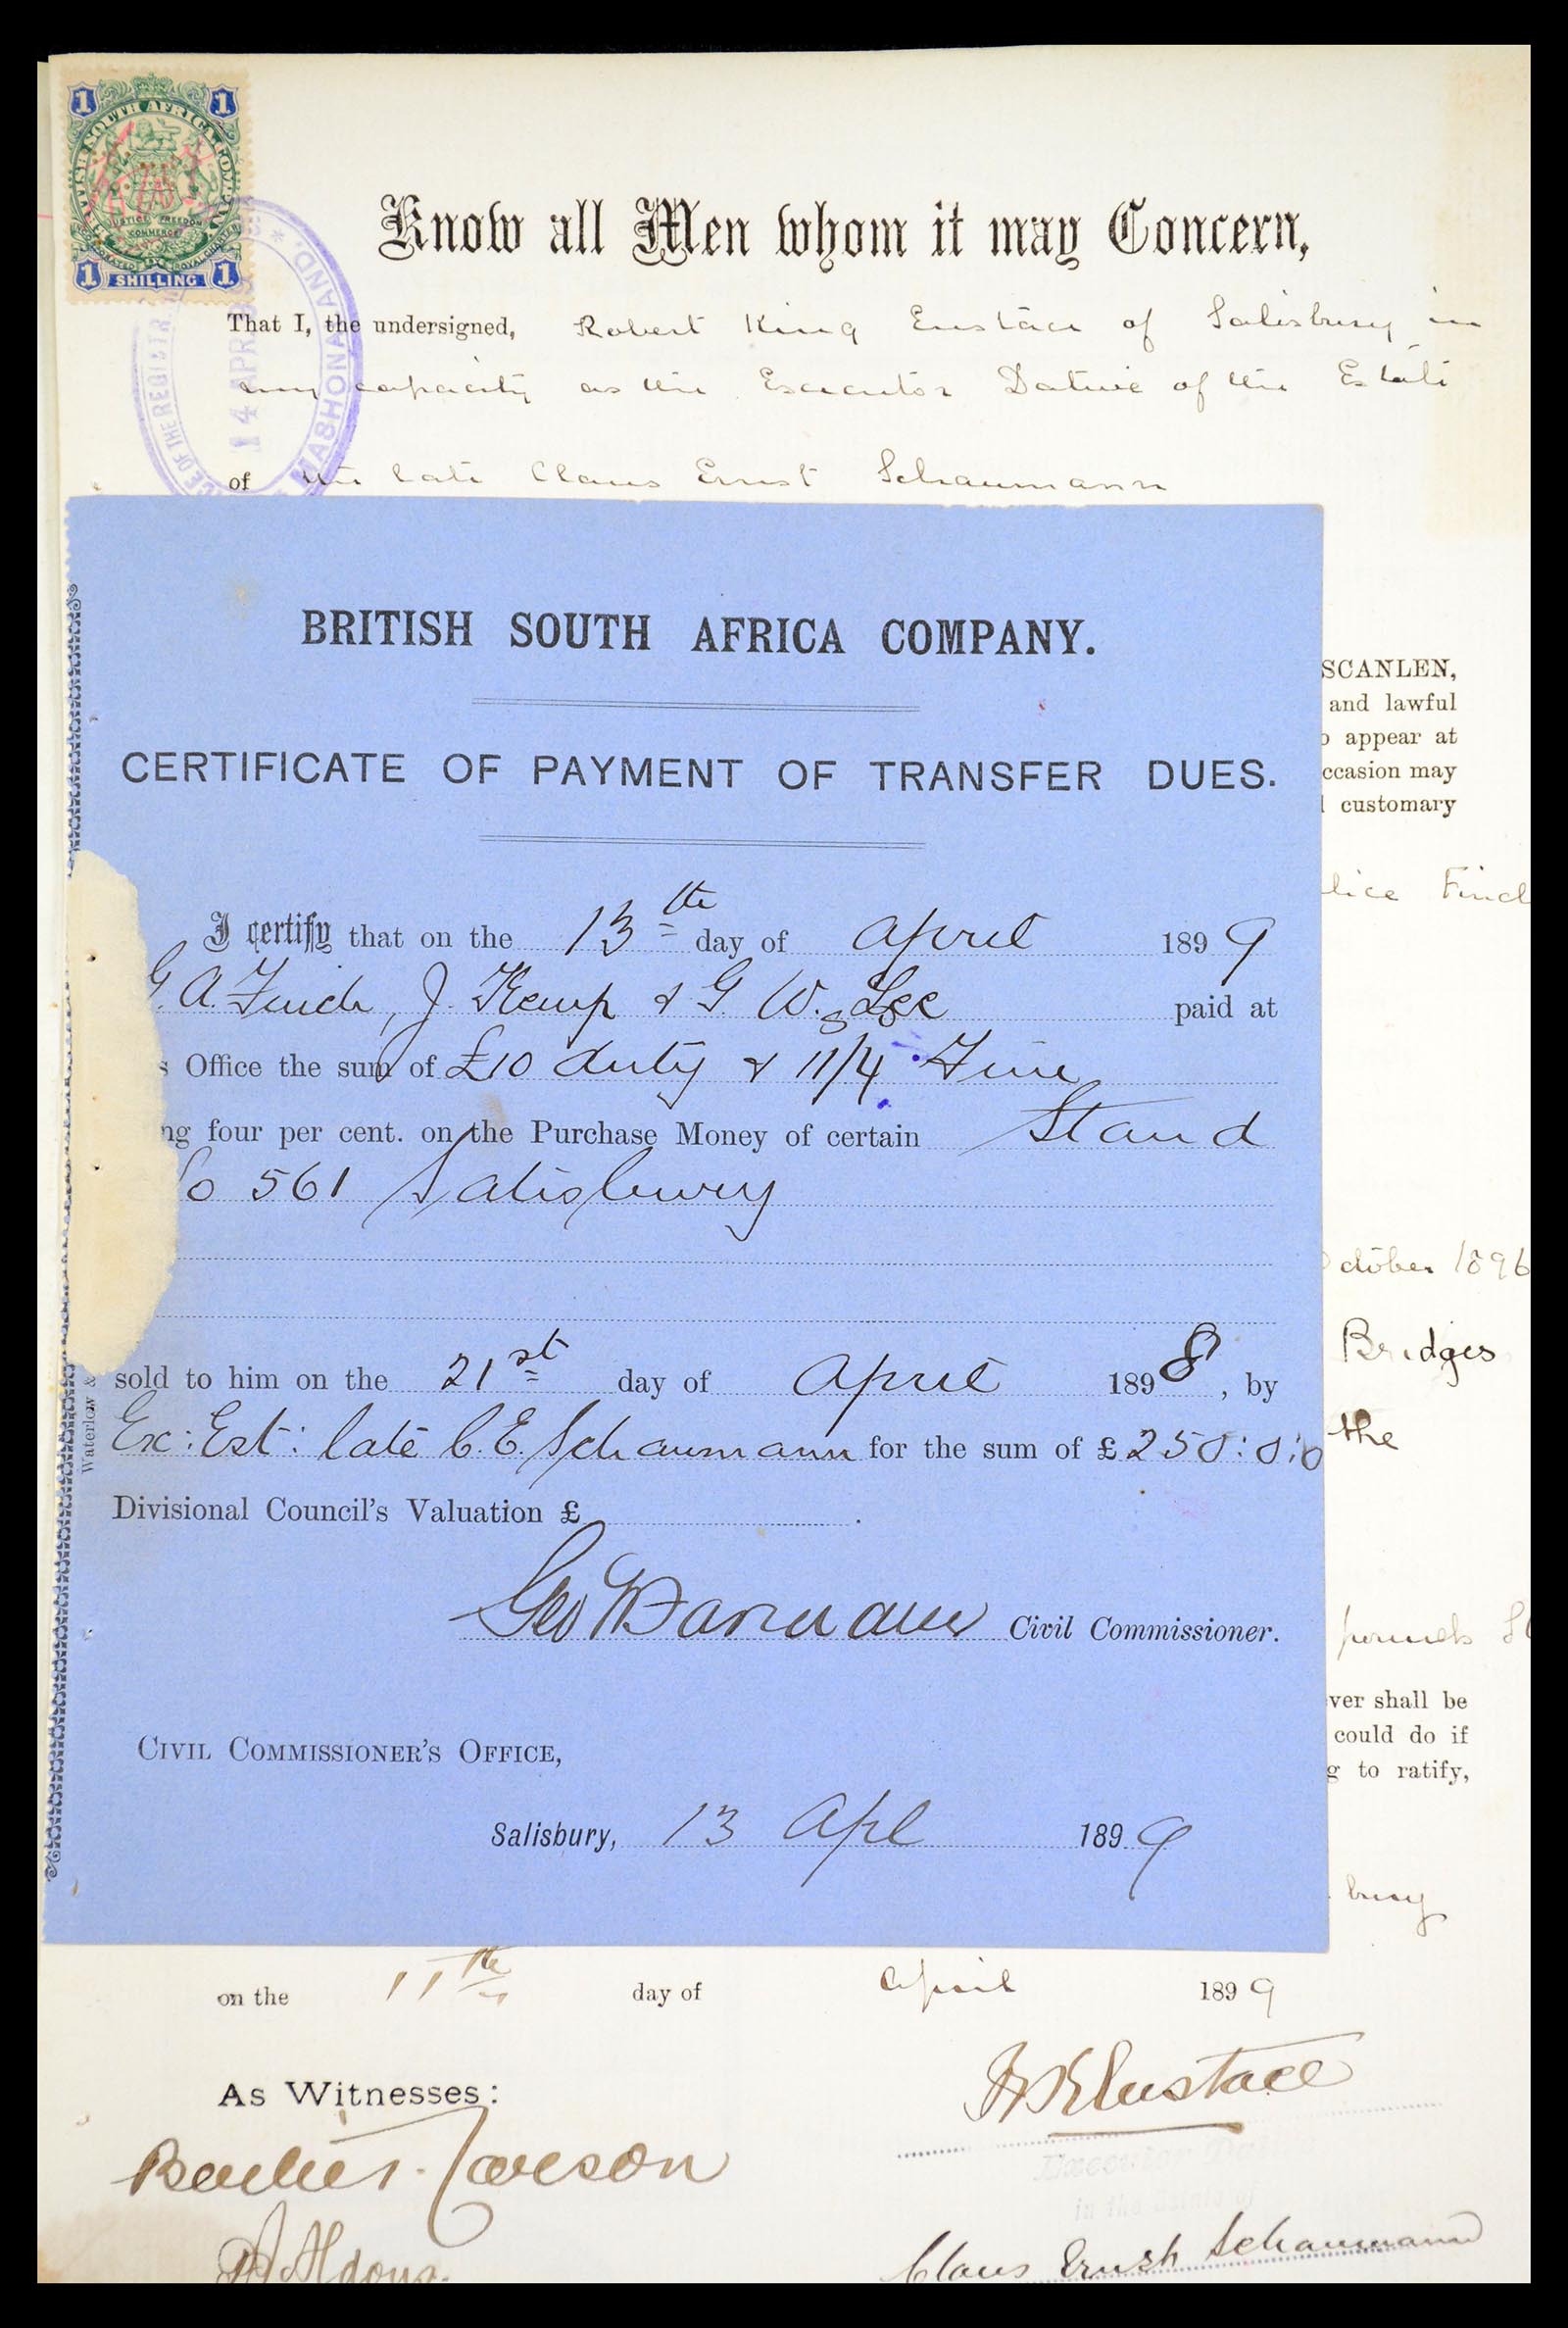 1 1
BRITISH SOUTH AFRICA COMPANY
JUSTICE FREEDOM
COMMERCE
1 SHILLING 1
OFFICE OF THE REGISTR
14 APR
MASHONALAND.
Know all Men whom it may Concern,
That I, the undersigned, Robert King Eustace of Salisbury in
my capacity as the Executor Dative of the Estate
of the late Claus Ernst Schaumann
BRITISH SOUTH AFRICA COMPANY.
CERTIFICATE OF PAYMENT OF TRANSFER DUES.
I certify that on the 13th day of April 1899
G. A. Finch, J. Kemp & G. W. Lee paid at
s Office the sum of £10 duty & 11/4 Fine
ng four per cent. on the Purchase Money of certain Stand
No 561 Salisbury
sold to him on the 21st day of April 1898, by
Ex: Est: late C. E. Schaumann for the sum of £250:0:0
Divisional Council's Valuation £ .
Geo Civil Commissioner.
CIVIL COMMISSIONER'S OFFICE,
Salisbury, 13 Apl 1899
Waterlow &
SCANLEN,
and lawful
o appear at
ccasion may
l customary
lice Finch
October 1896
Bridges
the
pounds St
ver shall be
could do if
g to ratify,
bury
on the 11th day of April 1899
As Witnesses:
R K Eustace
Executor Dat
in the Estate of
Claus Ernst Schaumann